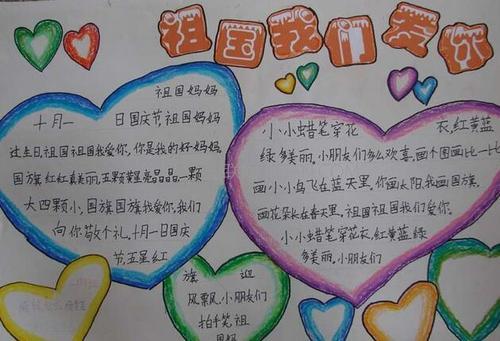 祖国我们爱你
祖国妈妈
十月一 日国庆节祖国妈妈
过生日,祖国祖国我爱你,你是我的好妈妈,
国旗红红真美丽,五颗黄星亮晶晶一颗
大四颗小,国旗国旗我爱你,我们
向你敬个礼,十月一日国庆
节,五星红
旗 迎
风飘飘,小朋友们
拍手笑,祖
国妈
小小蜡笔穿花 衣,红黄蓝
绿多美丽,小朋友们多么欢喜,画个图画比一比
画小小鸟飞在蓝天里,你画太阳,我画国旗,
画花朵长在春天里,祖国祖国我们爱你。
小小蜡笔穿花衣,红黄蓝绿
多美丽,小朋友们